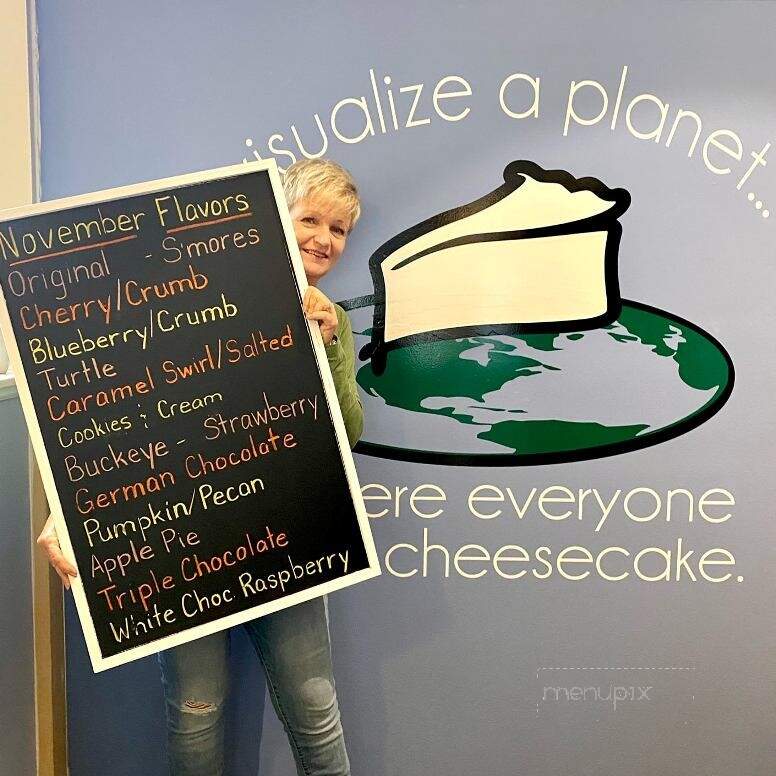 November Flavors
Original - S'mores
Cherry/Crumb
Blueberry/Crumb
Turtle
Caramel Swirl/Salted
Cookies & Cream
Buckeye - Strawberry
German Chocolate
Pumpkin/Pecan
Apple Pie
Triple Chocolate
White Choc. Raspberry
isualize a planet...
ere everyone
cheesecake.
menupix